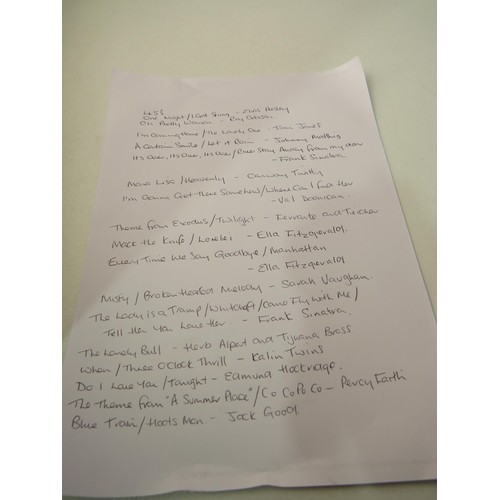 45s
One Night/I Got Stung - Elvis Presley
Oh Pretty Woman - Roy Orbison
I'm Coming Home/The Lonely One - Tom Jones
A Certain Smile/Let it Rain - Johnny Mathis
It's Over, It's Over, It's Over/River Stay Away from my door
- Frank Sinatra
Mona Lisa/Heavenly - Conway Twitty
I'm Gonna Get There Somehow/Where Can I find Her
- Val Doonican
Theme from Exodus/Twilight - Ferrante and Teicher
Mack the Knife/Lorelei - Ella Fitzgerald
Every Time We Say Goodbye/Manhattan
- Ella Fitzgerald
Misty/Broken Hearted Melody - Sarah Vaughan.
The Lady is a Tramp/Witchcraft/Come Fly with Me/
Tell Her You Love Her - Frank Sinatra.
The Lonely Bull - Herb Alpert and Tijuana Brass
When/Three O'Clock Thrill - Kalin Twins
Do I Love You/Tonight - Edmund Hockridge.
The Theme from "A Summer Place"/Co Co Po Co - Percy Faith
Blue Train/Hoots Mon - Jack Good